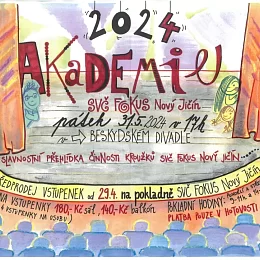 "2024"
AKADEMIE
SVČ FOKUS NOVÝ JIČÍN
pátek 31.5.2024 v 17h
v → BESKYDSKÉM DIVADLE
SLAVNOSTNÍ PŘEHLÍDKA ČINNOSTI KROUŽKŮ SVČ FOKUS NOVÝ JIČÍN
PŘEDPRODEJ VSTUPENEK od 29.4. na pokladně SVČ FOKUS Nový Jičín
VSTUPENKY 180,-Kč sál 140,-Kč balkón
VSTUPENKY NA OSOBU)
POKLADNÍ HODINY:
PLATBA POUZE V HOTOVOSTI